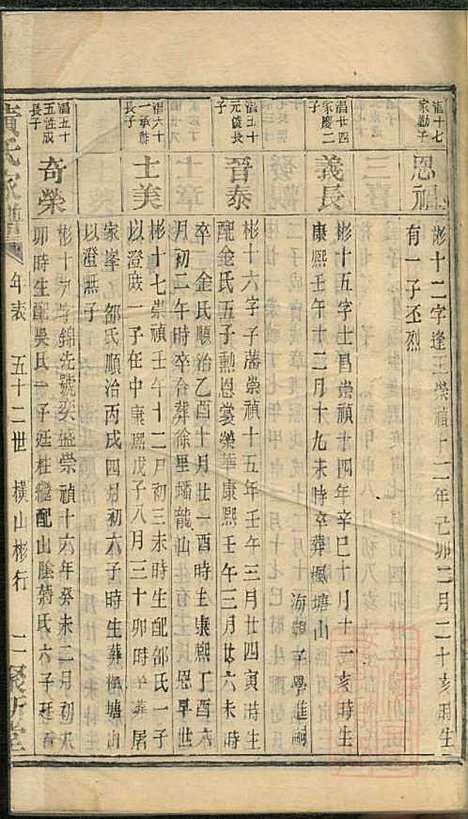 溍十七
家勱子
恩祖
彬十二字逢王崇禎十二年己卯二月二十亥時生
有一子丕烈
溍廿四
家慶二
子
義長
彬十五字士昌崇禎十四年辛巳十月十一亥時生
康熙壬午十二月十九未時卒葬楓塘山
溍五十
元儀長
子
晉泰
彬十六字子藩崇禎十五年壬午三月廿四寅時生
配金氏五子勲恩裳榮華康熙壬午三月廿六未時
卒 金氏順治乙酉十月廿一酉時生康熙丁酉六
月初二午時卒合葬徐里蟠龍山 恩早世
溍六十
一承爵
長子
士美
彬十七崇禎壬午十二月初三未時生配邵氏一子
以澄一子在中康熙戊子八月三十卯時卒葬屠
家峯 邵氏順治丙戌四月初六子時生葬楓塘山
以澄無子
溍五十
五性成
長子
奇榮
彬十九字錦先號奕盛崇禎十六年癸未二月初八
卯時生配吳氏一子廷桂繼配山陰蔣氏六子廷
黃氏家譜
年表
五十二世
橫山彬行
二
聚
堂